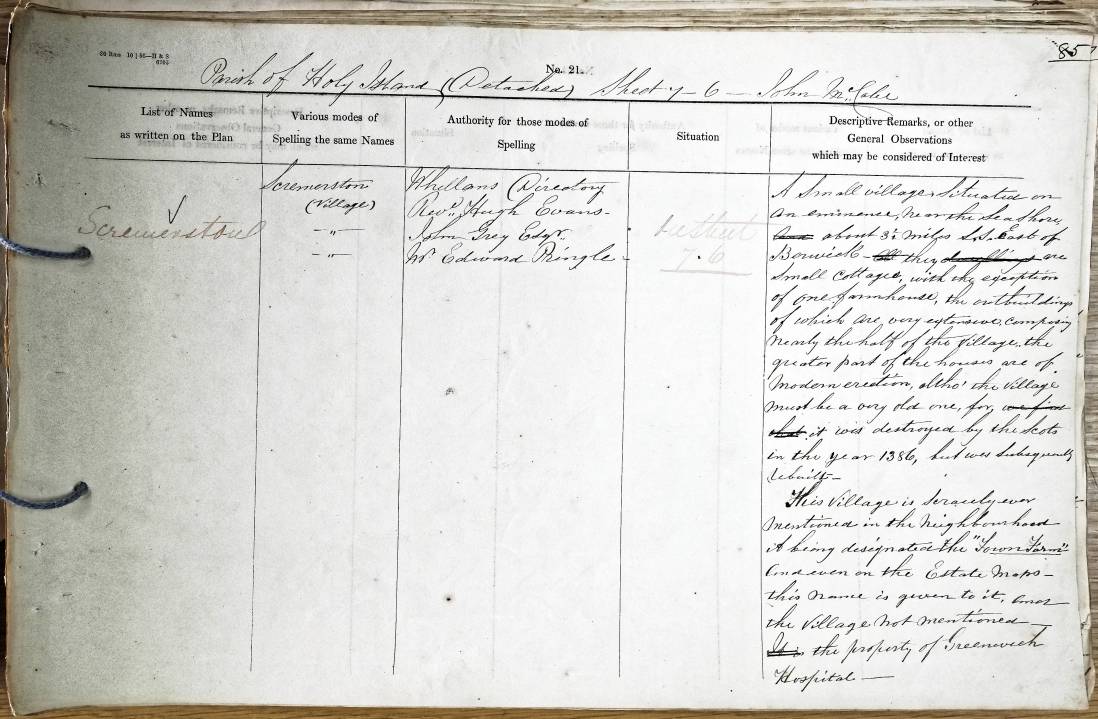 85
No. 21.
Parish of Holy Island (Detached) Sheet 7 - 6 - John McCabe
List of Names
as written on the Plan
Various modes of
Spelling the same Names
Authority for those modes of
Spelling
Situation
Descriptive Remarks, or other
General Observations
which may be considered of Interest
Scremerston
Scremerston
(Village)
-"-
-"-
Whellans Directory
Revd. Hugh Evans.
John Grey Esqr.
Mr Edward Pringle
7.6
A Small village, Situated on
an eminence, Near the sea Shore,
about 3½ miles S.S. East of
Berwick - they dwellings are
small Cottages, with the exception
of one farmhouse, the outbuildings
of which are very extensive, composing
nearly the half of the Village. the
greater part of the houses are of
Modern erection, altho' the Village
must be a very old one, for, we find
that it was destroyed by the Scots
in the year 1386, but was Subsequently
rebuilt -
This Village is Scracely ever
mentioned in the Neighbourhood
it being designated the "Town Farm"
and even on the Estate Maps -
this name is given to it, and
the Village Not mentioned -
It is the property of Greenwich
Hospital -